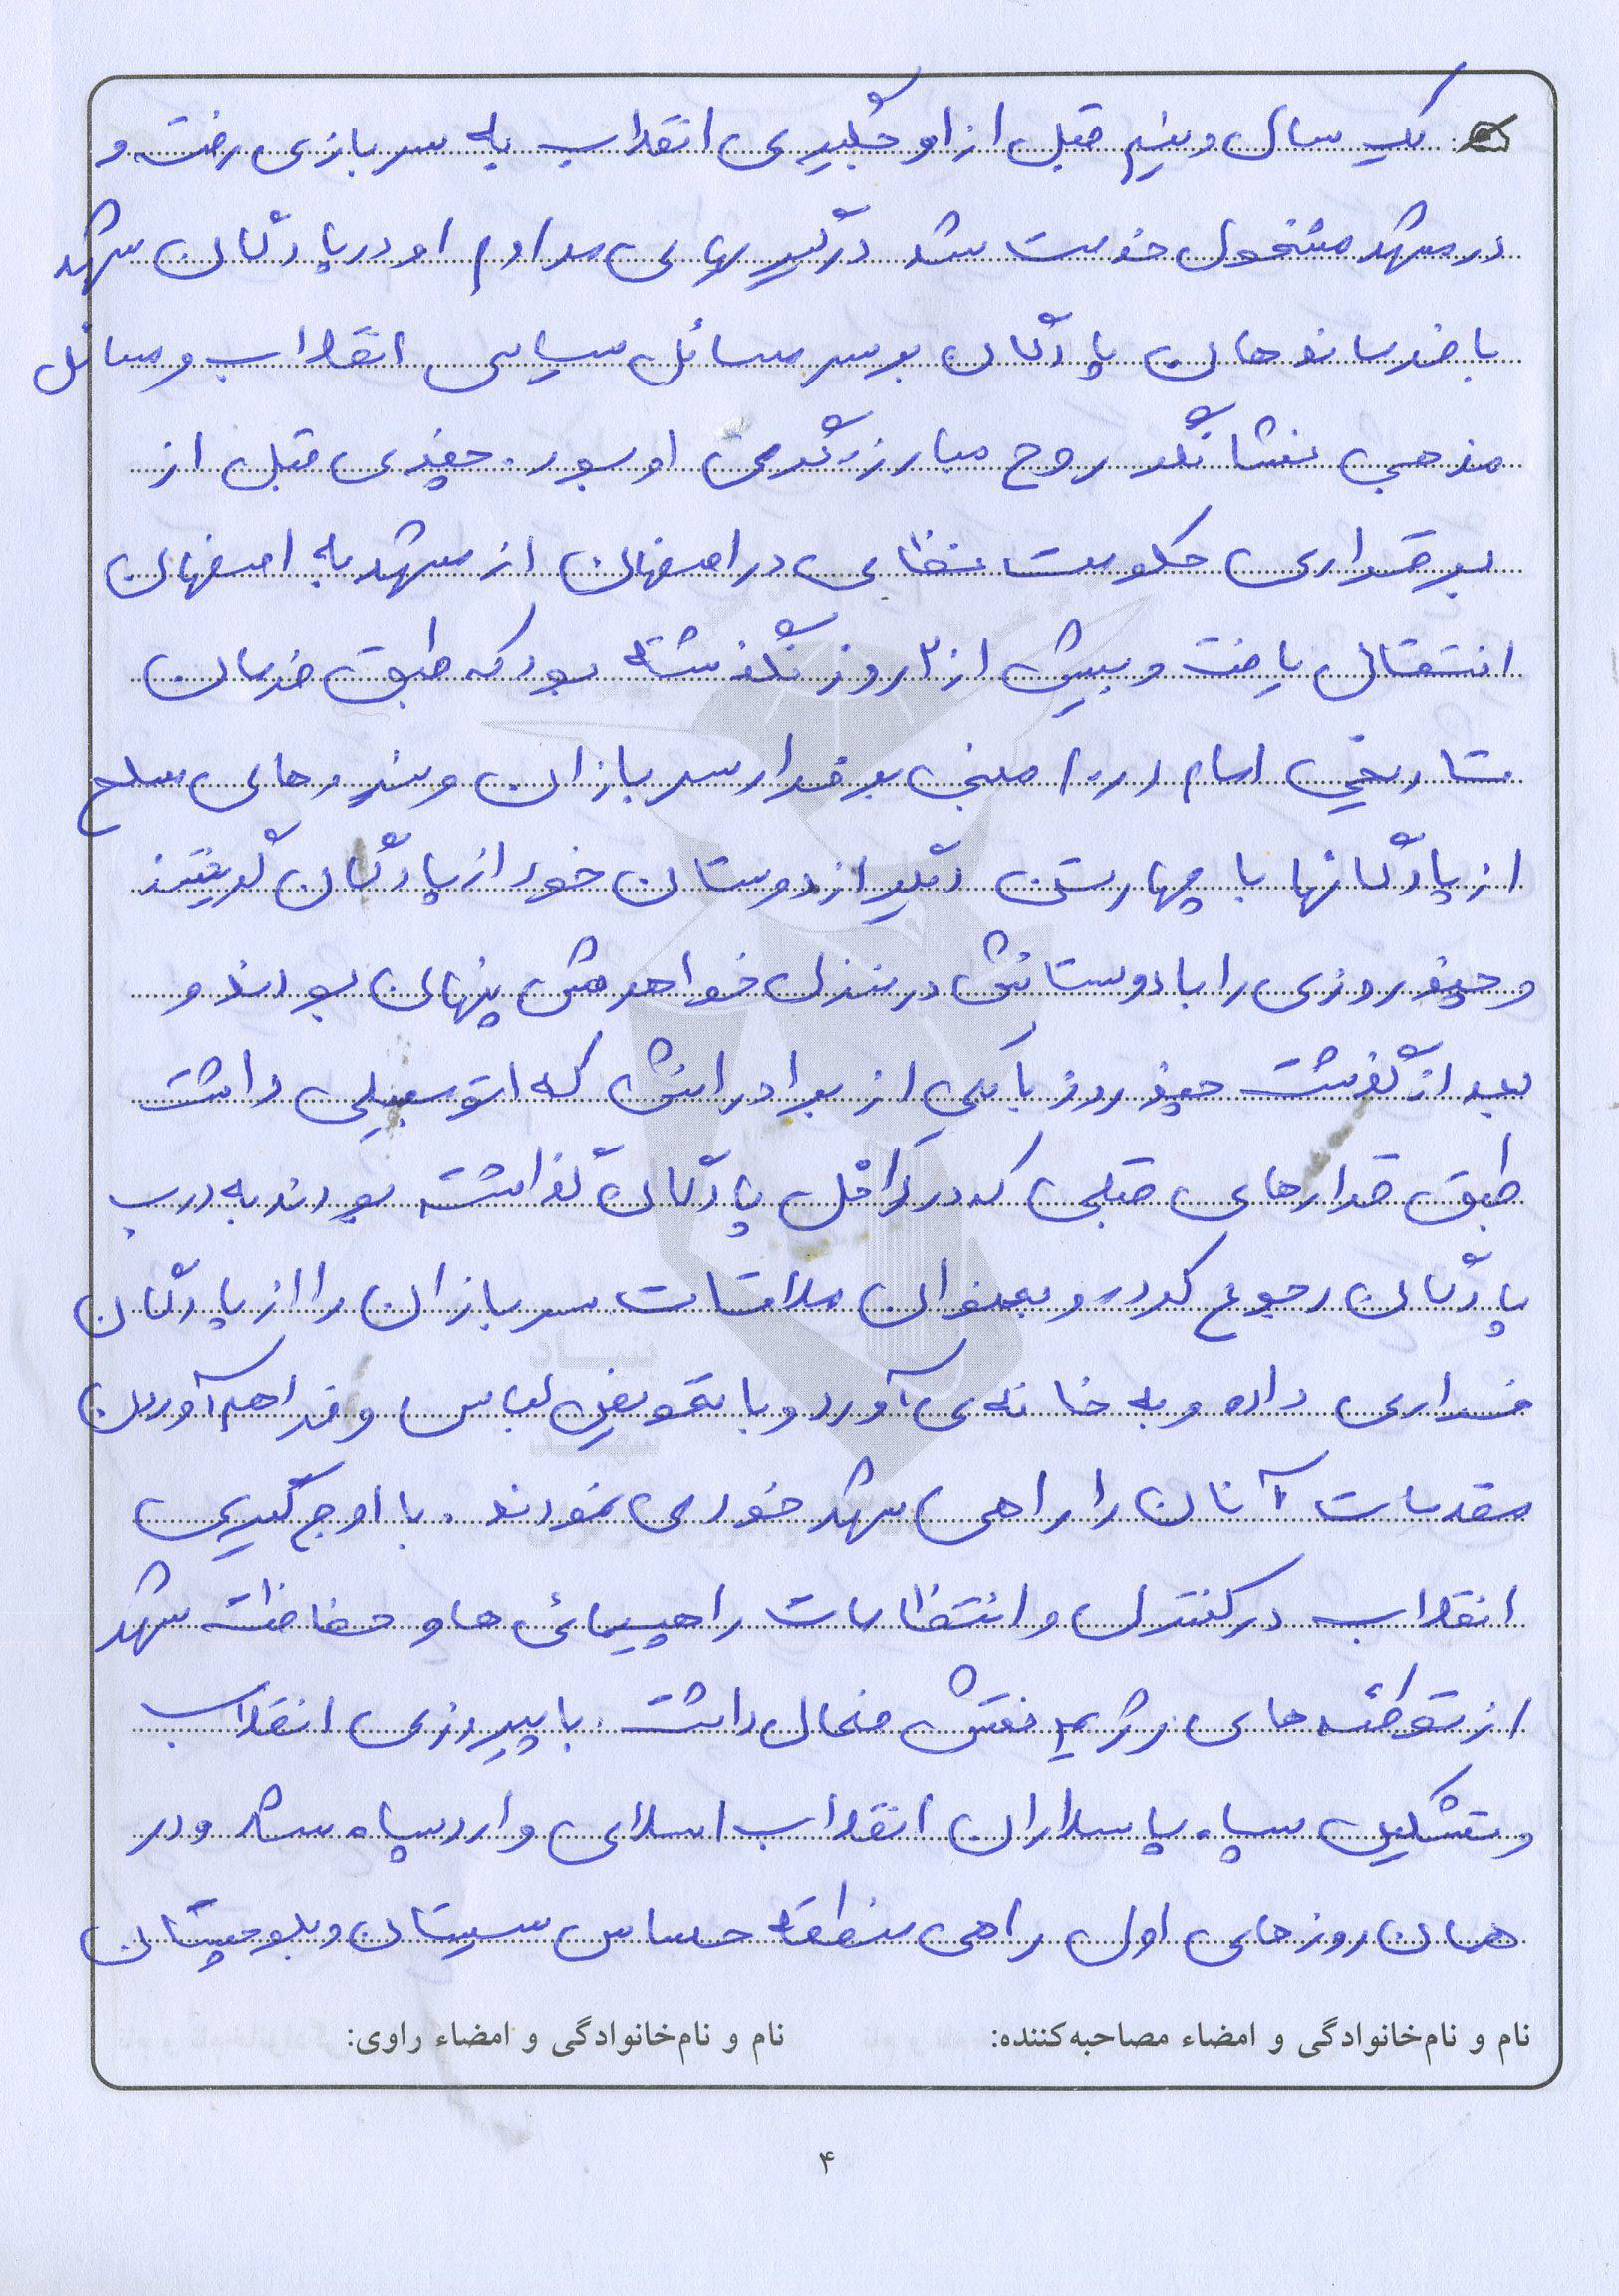 یک سال و نیم قبل از اوجگیری انقلاب به سربازی رفت و
در مشهد مشغول خدمت شد درگیریهای مداوم او در پادگان مشهد
با فرماندهان پادگان بر سر مسائل سیاسی انقلاب و مسائل
مذهبی نشانگر روح مبارزه‌گری او بود. چندی قبل از
برقراری حکومت نظامی در اصفهان از مشهد به اصفهان
انتقال یافت و بیش از ۲ روز نگذشته بود که طبق فرمان
تاریخی امام (ره) مبنی بر فرار سربازان و نیروهای مسلح
از پادگانها با چهار تن دیگر از دوستان خود از پادگان گریختند
و چند روزی را با دوستانش در منزل خواهرش پنهان بودند و
بعد از گذشت چند روز با یکی از برادرانش که اتومبیلی داشت
طبق قرارهای قبلی که در داخل پادگان گذاشته بودند به درب
پادگان رجوع کرده و بعنوان ملاقات سربازان را از پادگان
فراری داده و به خانه می‌آورد و با تعویض لباس و فراهم آوردن
مقدمات آنان را راهی شهر خود می نمودند. با اوج گیری
انقلاب در کنترل و انتظامات راهپیمائی ها و حفاظت شهر
از توطئه های رژیم نقش فعال داشت. با پیروزی انقلاب
و تشکیل سپاه پاسداران انقلاب اسلامی وارد سپاه شد و در
همان روزهای اول راهی منطقه حساس سیستان و بلوچستان
نام و نام‌خانوادگی و امضاء مصاحبه‌کننده: نام و نام‌خانوادگی و امضاء راوی:
۴